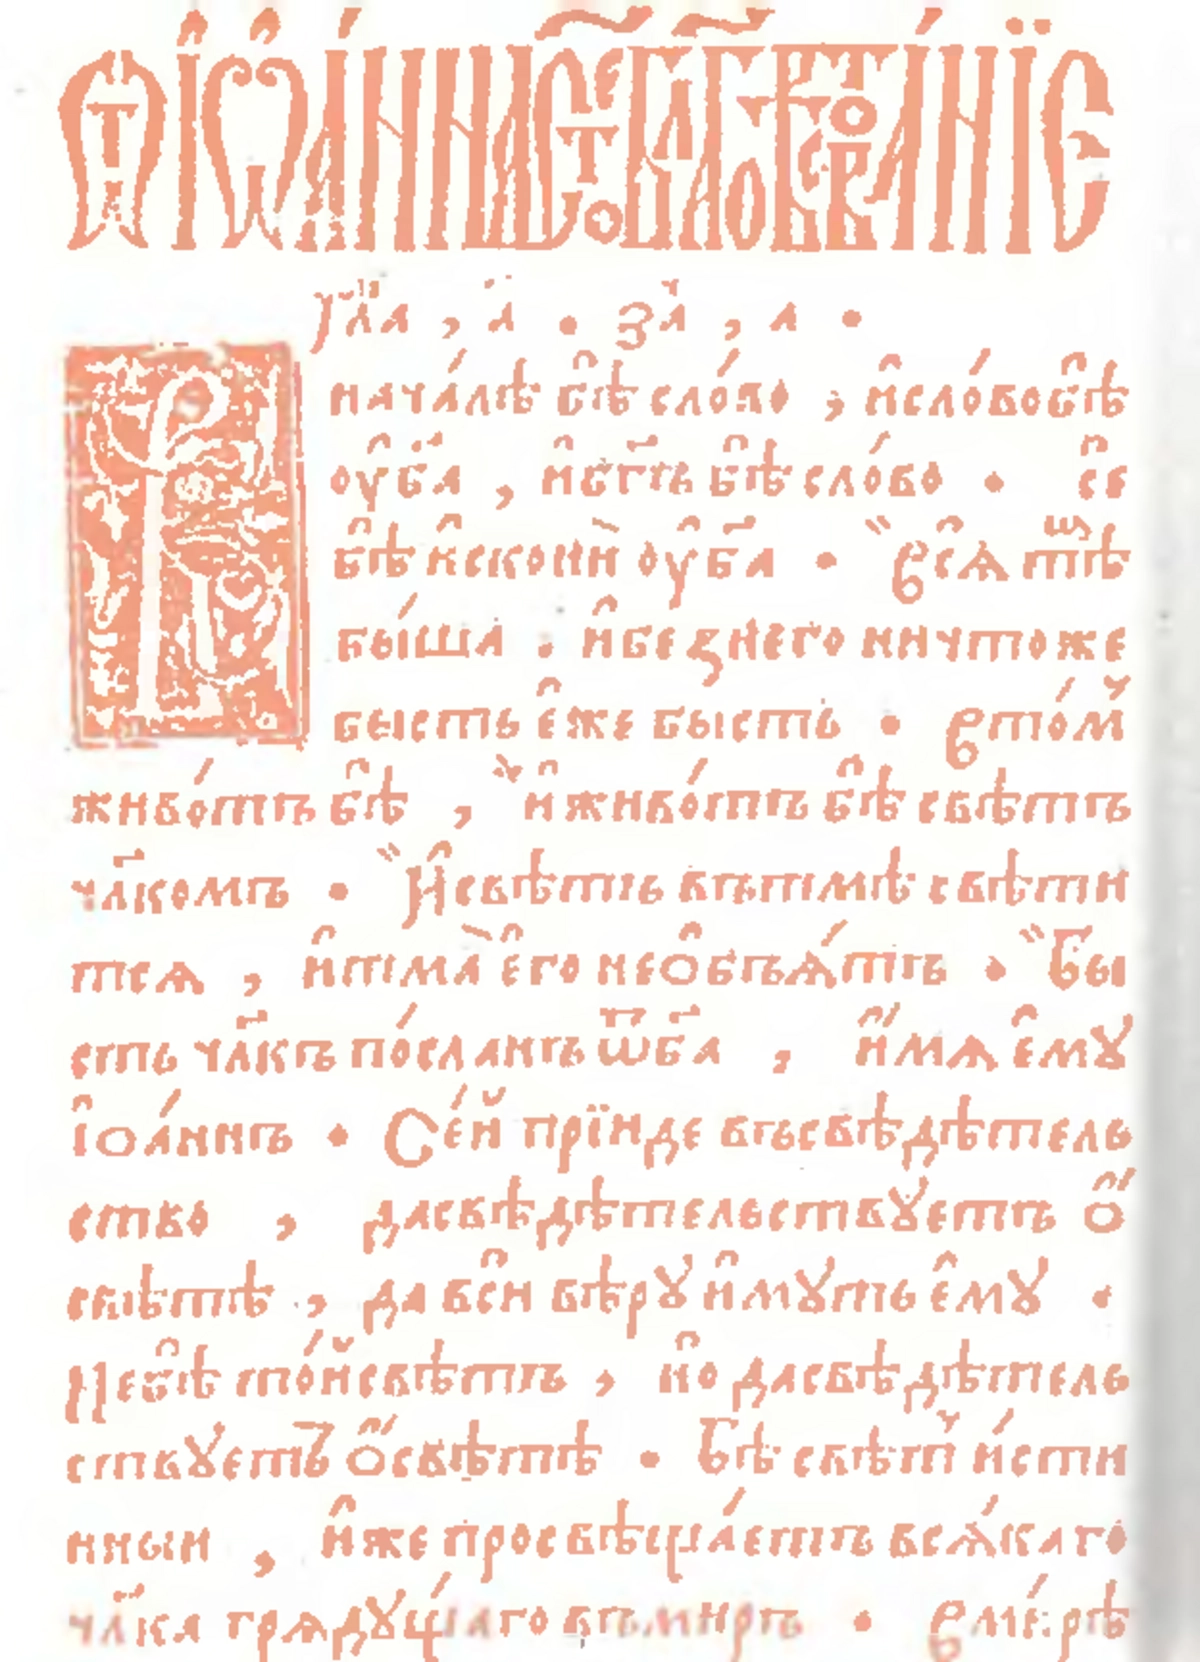 ѿ іѡанна ст҃ое бл҃говѣствованїе
гл҃а , а҃ • за҃ , а •
нача́лѣ бѣ̑ сло́во , и҆сло́вобѣ̑
оу҆бг҃а , и҆бг҃ъ бѣ̑ сло́во • се҆
бѣ̑ и҆скони̏ оу҆бг҃а • всѧ҆ тѣ
бы́ша . и҆безнего ничтоже
бысть є҆же бысть • вто́м
живо́тъ бѣ̑ , и҆ живо́тъ бѣ̑ свѣтъ
чл҃комъ • И҆свѣтъ вътмѣ свѣти
тсѧ , и҆тмà є҆го нео҆бъѧ́тъ • Бы
сть чл҃къ по́сланъ ѿбг҃а , и҆́мѧ є҆мꙋ
і҆оа́ннъ • Се́й прїиде въсвѣдѣтель
ство , дасвѣдѣтельствꙋетъ ѻ҆́
свѣтѣ , да вси҆ вѣрꙋ и҆мꙋть є҆мꙋ •
Небѣ̑ то́йсвѣтъ , но҆ дасвѣдѣтель
ствꙋетъ ѻ҆́свѣтѣ • Бѣ свѣт и҆́сти
нныи , и҆же просвѣща́етъ всѧ́каго
чл҃ка грѧдꙋщ́аго въмиръ • вме́рѣ